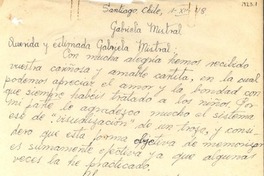 Santiago, Chile,
Gabriela Mistral
Querida y estimada Gabriela Mistral:
Con mucha alegría hemos recibido
vuestra cariñosa y amable cartita, en la cual
podemos apreciar el amor y la bondad con
que siempre habéis tratado a los niños. Por
mi parte le agradezco mucho el sistema
ese de "visualización" de un trozo, y consi-
dero que esta forma objetiva de memorizar
es sumamente efectiva ya que algunas
veces la he practicado.